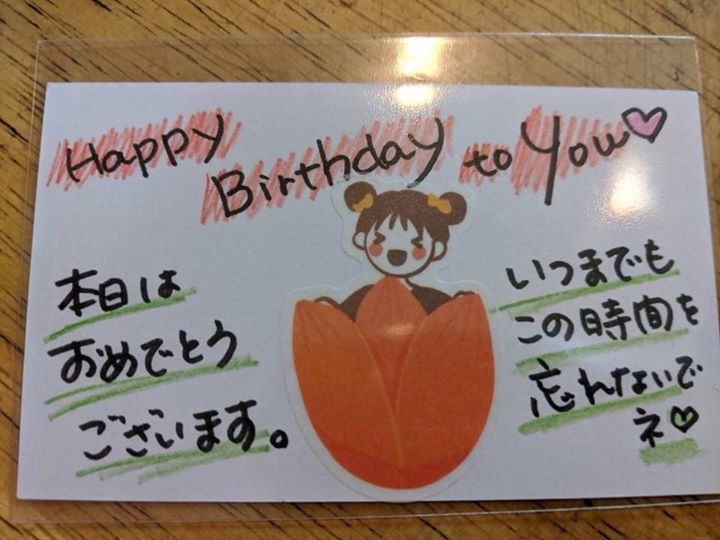 Happy Birthday to You♡
本日は
おめでとう
ございます。
いつまでも
この時間を
忘れないで
ネ♡